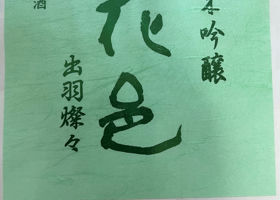 吟醸
花邑
出羽燦々
酒